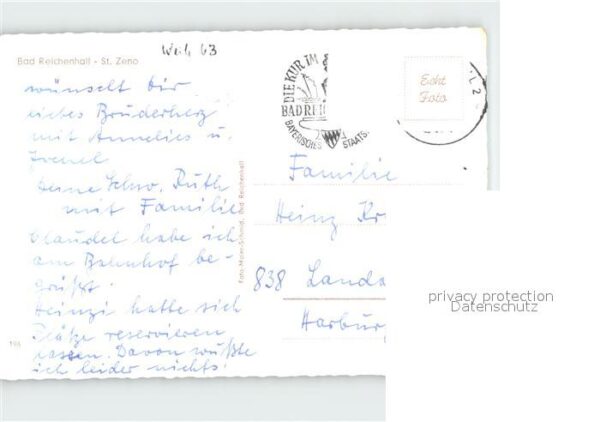 Weih 63
Bad Reichenhall - St. Zeno
wünselt Dir
liebes Brüderherz
mit Annelies u.
deine Schw. Ruth
mit Familie
habe ich
am Bahnhof be-
grüßt.
Heinzi hatte sich
Plätze reservieren
lassen. Davon wußte
ich leider nichts!
196
Foto-Maier-Schmidt, Bad Reichenhall
DIE KUR IM
BAD REI
BAYERISCHES STAATS.
Echt
Foto
Familie
Heinz Kr
838 Landa
Harbur
privacy protection
Datenschutz